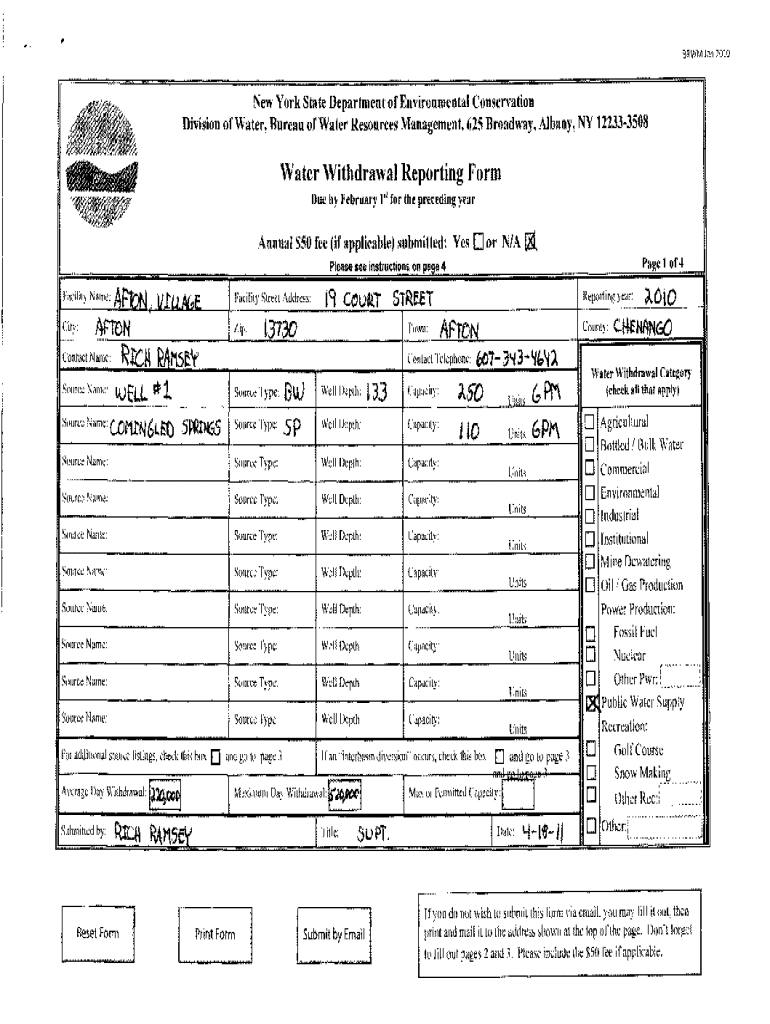 New York State Department of Environmental Conservation
Division of Water, Bureau of Water Resources Management, 625 Broadway, Albany, NY 12233-3508
Water Withdrawal Reporting Form
Due by February 1st for the preceding year
Annual $50 fee (if applicable) submitted: Yes or N/A X
Please see instructions on page 4
Page 1 of 4
Facility Name: AFTON, VILLAGE Facility Street Address: 19 COURT STREET Reporting year: 2010
City: AFTON Zip: 13730 Town: AFTON County: CHENANGO
Contact Name: RICH RAMSEY Contact Telephone: 607-343-4642
Water Withdrawal Category
(check all that apply)
Source Name: WELL #1 Source Type: GW Well Depth: 133 Capacity: 250 Units GPM
Source Name: COMINGLED SPRINGS Source Type: SP Well Depth: Capacity: 110 Units GPM
Source Name: Source Type: Well Depth: Capacity: Units
Source Name: Source Type: Well Depth: Capacity: Units
Source Name: Source Type: Well Depth: Capacity: Units
Source Name: Source Type: Well Depth: Capacity: Units
Source Name: Source Type: Well Depth: Capacity: Units
Source Name: Source Type: Well Depth Capacity: Units
Source Name: Source Type: Well Depth Capacity: Units
Source Name: Source Type Well Depth Capacity: Units
Agricultural
Bottled / Bulk Water
Commercial
Environmental
Industrial
Institutional
Mine Dewatering
Oil / Gas Production
Power Production:
Fossil Fuel
Nuclear
Other Pwr:
X Public Water Supply
Recreation:
Golf Course
Snow Making
Other Rec:
Other:
For additional source listings, check this box and go to page 3 If an "interbasin diversion" occurs, check this box and go to page 3
Average Day Withdrawal: 220,000 Maximum Day Withdrawal: 520,000 Max or Permitted Capacity:
Submitted by: RICH RAMSEY Title: SUPT. Date: 4-18-11
Reset Form
Print Form
Submit by Email
If you do not wish to submit this form via email, you may fill it out, then
print and mail it to the address shown at the top of the page. Don't forget
to fill out pages 2 and 3. Please include the $50 fee if applicable.